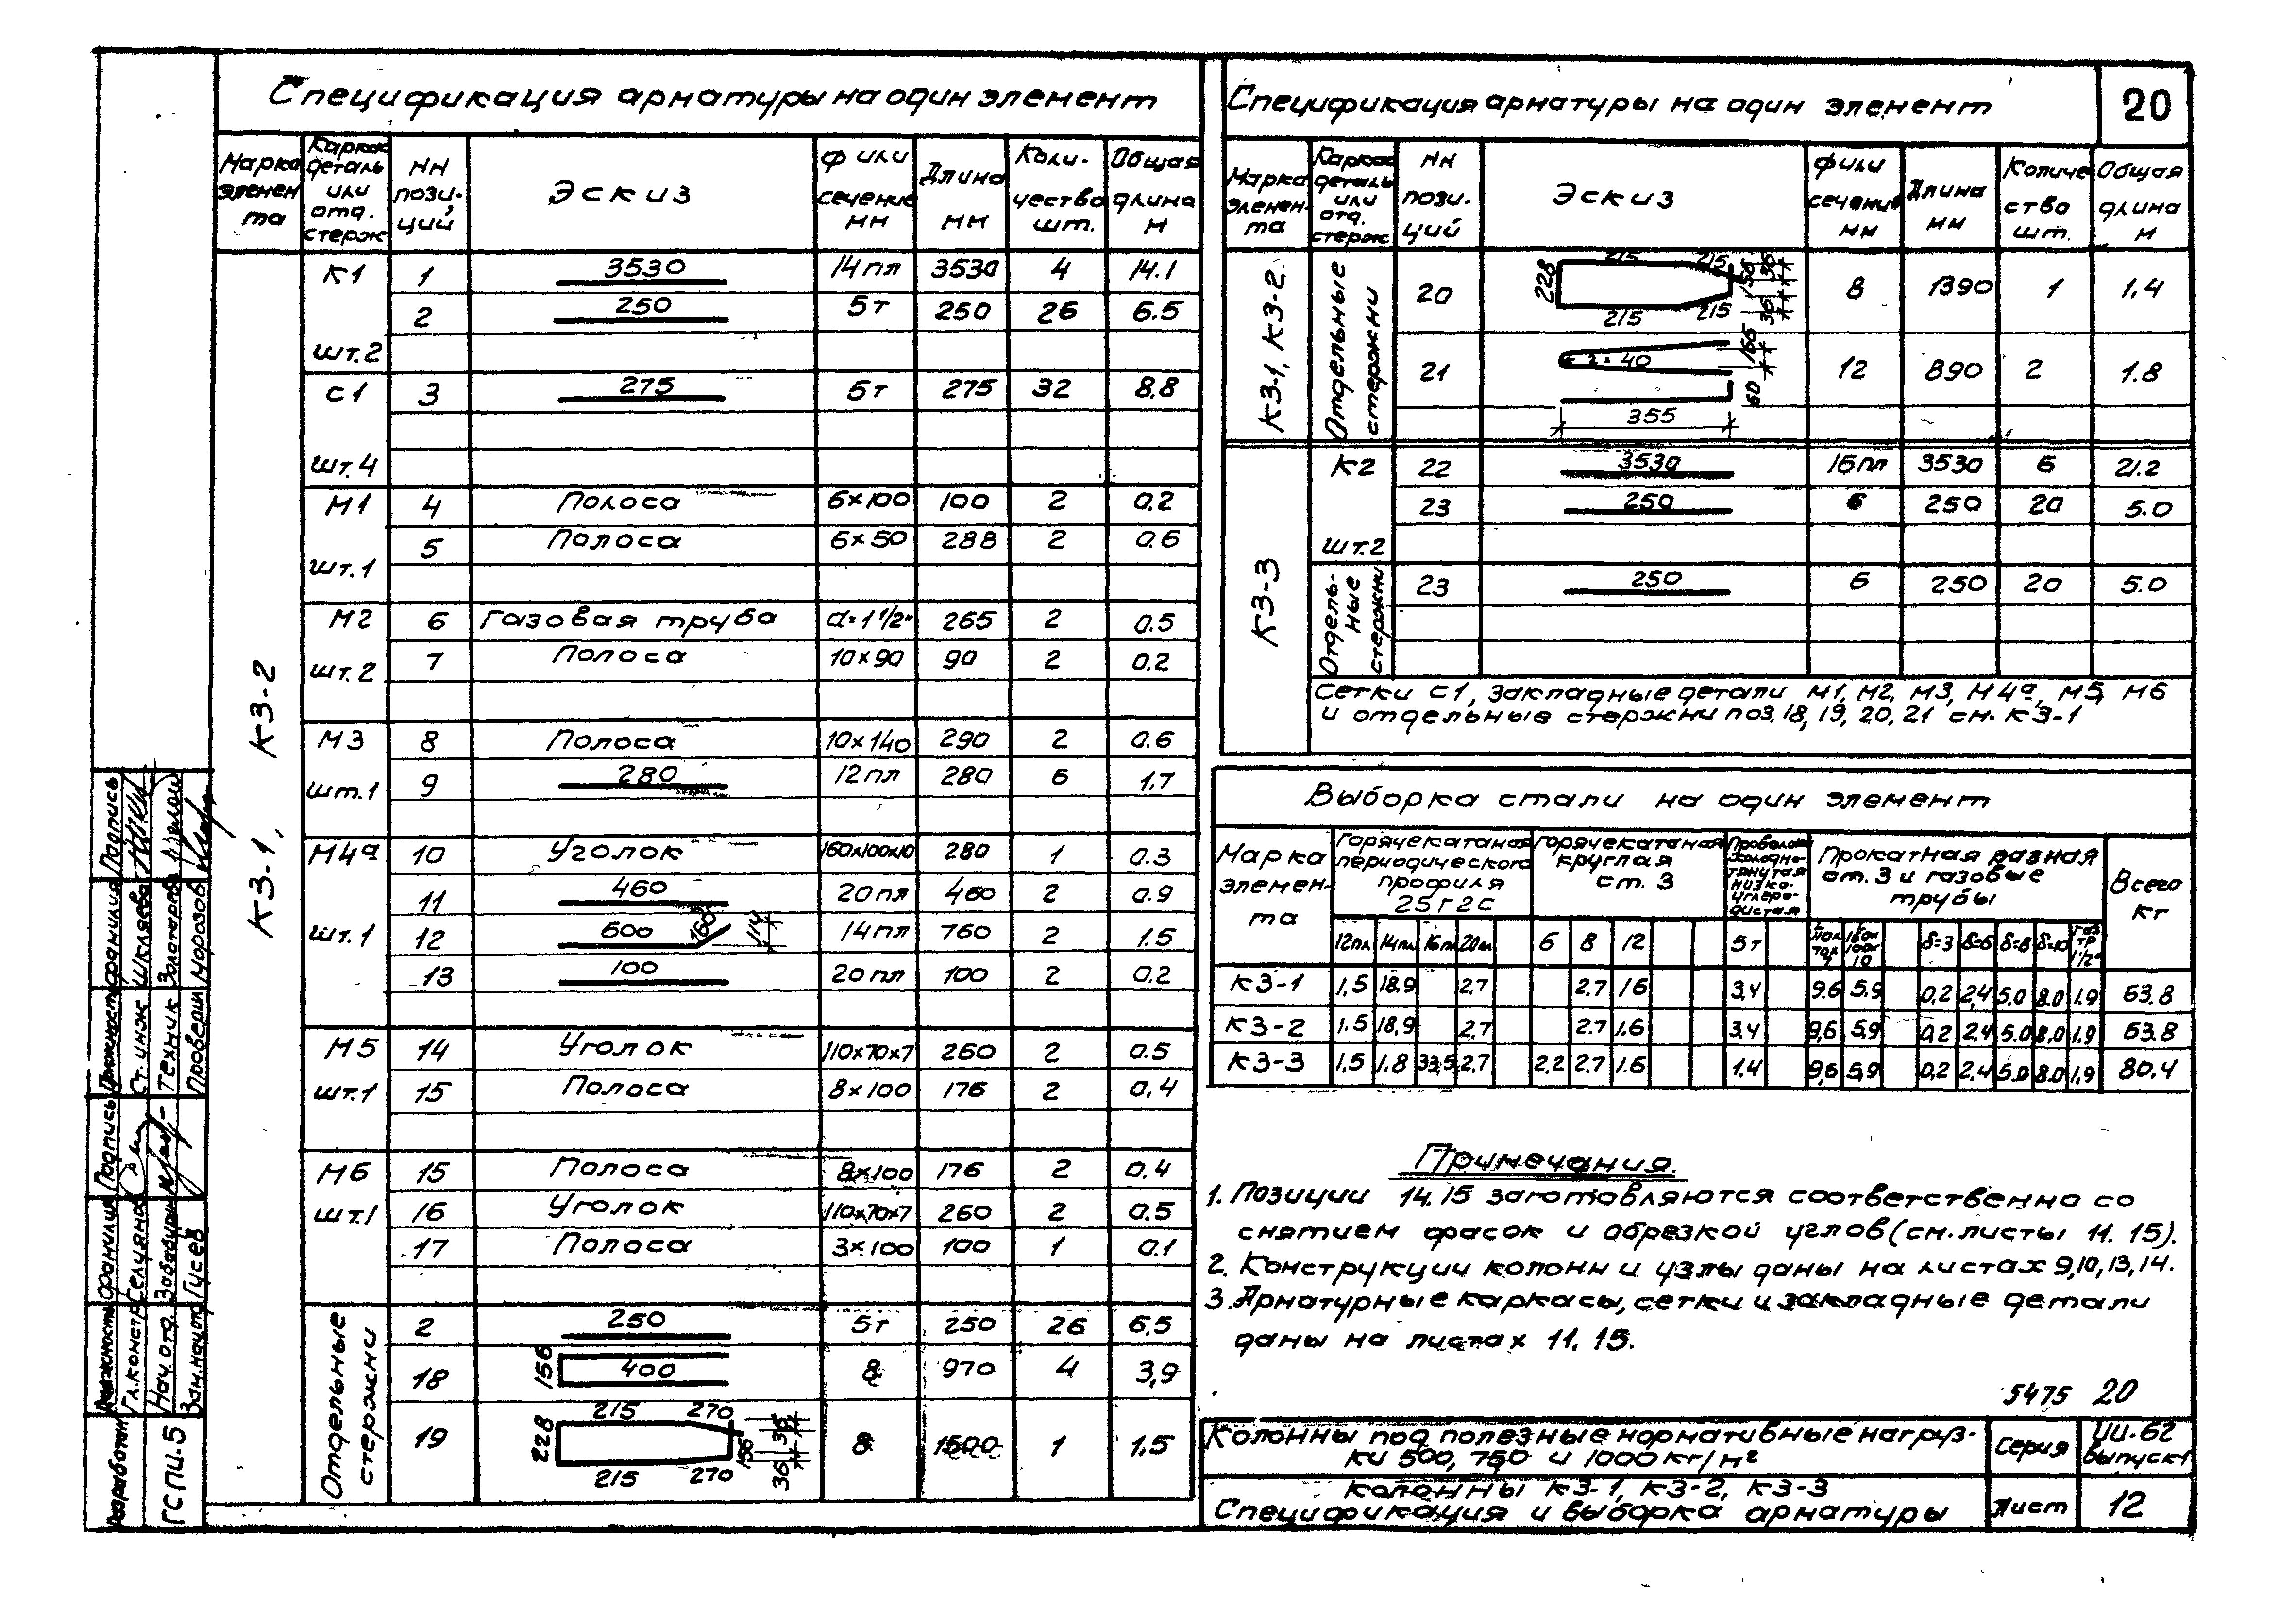 Спецификация арматуры на один элемент
Марка элемен та | Каркас деталь или отд. стерж | НН пози- ций | Эскиз | ф или сечение мм | Длина мм | Коли- чество шт. | Общая длина м
К3-1, К3-2
К1 | 1 | 3530 | 14 пл | 3530 | 4 | 14.1
2 | 250 | 5т | 250 | 26 | 6.5
шт.2
С1 | 3 | 275 | 5т | 275 | 32 | 8,8
шт.4
М1 | 4 | Полоса | 6×100 | 100 | 2 | 0.2
5 | Полоса | 6×50 | 288 | 2 | 0.6
шт.1
М2 | 6 | Газовая труба | d=1 1/2" | 265 | 2 | 0.5
шт.2 | 7 | Полоса | 10×90 | 90 | 2 | 0.2
М3 | 8 | Полоса | 10×140 | 290 | 2 | 0.6
шт.1 | 9 | 280 | 12 пл | 280 | 6 | 1.7
М4а | 10 | Уголок | 160×100×10 | 280 | 1 | 0.3
11 | 460 | 20 пл | 460 | 2 | 0.9
шт.1 | 12 | 600 160 114 | 14 пл | 760 | 2 | 1.5
13 | 100 | 20 пл | 100 | 2 | 0.2
М5 | 14 | Уголок | 110×70×7 | 260 | 2 | 0.5
шт.1 | 15 | Полоса | 8×100 | 176 | 2 | 0,4
М6 | 15 | Полоса | 8×100 | 176 | 2 | 0.4
шт.1 | 16 | Уголок | 110×70×7 | 260 | 2 | 0.5
17 | Полоса | 3×100 | 100 | 1 | 0.1
Отдельные стержни
2 | 250 | 5т | 250 | 26 | 6,5
18 | 156 400 | 8 | 970 | 4 | 3,9
19 | 228 215 270 215 270 156 36 36 | 8 | 1500 | 1 | 1.5
Спецификация арматуры на один элемент
20
Марка элемен- та | Каркас деталь или отд. стерж | НН пози- ций | Эскиз | ф или сечение мм | Длина мм | Количе ство шт. | Общая длина м
К3-1, К3-2
Отдельные стержни
20 | 228 215 215 215 215 156 36 36 | 8 | 1390 | 1 | 1.4
21 | 2·40 355 60 | 12 | 890 | 2 | 1.8
К3-3
К2 | 22 | 3530 | 16 пл | 3530 | 6 | 21.2
23 | 250 | 6 | 250 | 20 | 5.0
шт.2
Отдель- ные стержни
23 | 250 | 6 | 250 | 20 | 5.0
Сетки С1, закладные детали М1, М2, М3, М4а, М5, М6
и отдельные стержни поз. 18, 19, 20, 21 см. К3-1
Выборка стали на один элемент
Марка элемен- та | Горячекатаная периодического профиля 25Г2С | Горячекатаная круглая ст. 3 | Проволока холодно- тянутая низко- углеро- дистая | Прокатная разная ст. 3 и газовые трубы | Всего кг
12пл | 14пл | 16пл | 20пл | 6 | 8 | 12 | 5т | δ=3 | δ=6 | δ=8 | δ=10 | Газ тр 1 1/2"
К3-1 | 1.5 | 18.9 | 2.7 | 2.7 | 1.6 | 3,4 | 9.6 | 5.9 | 0,2 | 2,4 | 5.0 | 8.0 | 1.9 | 63.8
К3-2 | 1.5 | 18,9 | 2.7 | 2.7 | 1.6 | 3,4 | 9,6 | 5,9 | 0,2 | 2,4 | 5.0 | 8,0 | 1.9 | 63.8
К3-3 | 1,5 | 1.8 | 33,5 | 2.7 | 2.2 | 2.7 | 1.6 | 1.4 | 9,6 | 5,9 | 0,2 | 2,4 | 5.0 | 8.0 | 1,9 | 80.4
Примечания.
1. Позиции 14.15 заготовляются соответственно со
снятием фасок и обрезкой углов (см. листы 11. 15).
2. Конструкции колонн и узлы даны на листах 9,10,13,14.
3. Арматурные каркасы, сетки и закладные детали
даны на листах 11. 15.
5475 20
Колонны под полезные нормативные нагруз-
ки 500, 750 и 1000 кг/м²
Серия
ИИ-62
Выпуск 1
Колонны К3-1, К3-2, К3-3
Спецификация и выборка арматуры
Лист
12
Разработан
ГСПИ-5
Должность Фамилия Подпись
Гл. констр. Селуянов
Нач. отд. Забабурин
Зам. нач. отд. Гусев
Должность Фамилия Подпись
Ст. инж Шкляева
Техник Золотарева
Проверил Морозов